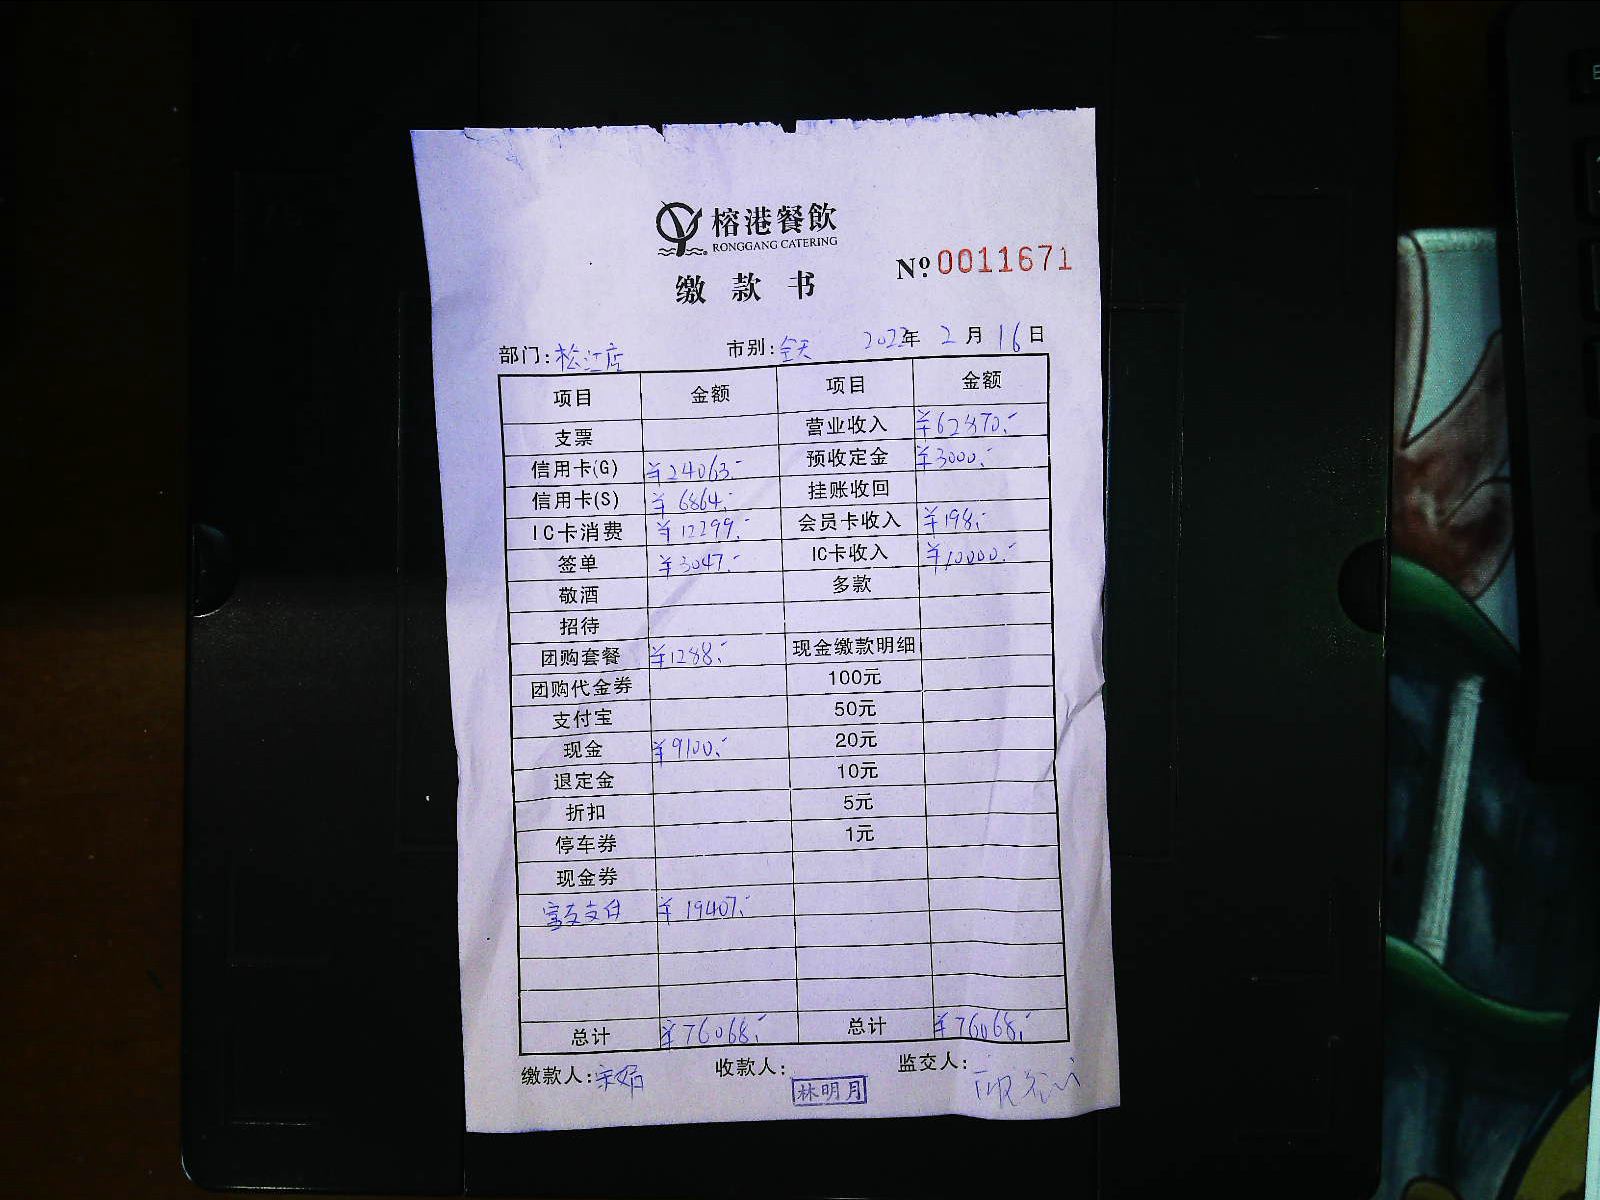 榕港餐飲
RONGGANG CATERING
缴款书
№ 0011671
部门：松江店 市别：全天 2022年 2月 16日
项目 金额 项目 金额
支票 营业收入 ¥62870.-
信用卡(G) ¥24063.- 预收定金 ¥3000.-
信用卡(S) ¥6864.- 挂账收回
IC卡消费 ¥12299.- 会员卡收入 ¥198.-
签单 ¥3047.- IC卡收入 ¥10000.-
敬酒 多款
招待
团购套餐 ¥1288.- 现金缴款明细
团购代金券 100元
支付宝 50元
现金 ¥9100.- 20元
退定金 10元
折扣 5元
停车券 1元
现金券
富友支付 ¥19407.-
总计 ¥76068.- 总计 ¥76068.-
缴款人：宋娟 收款人： 监交人：
林明月